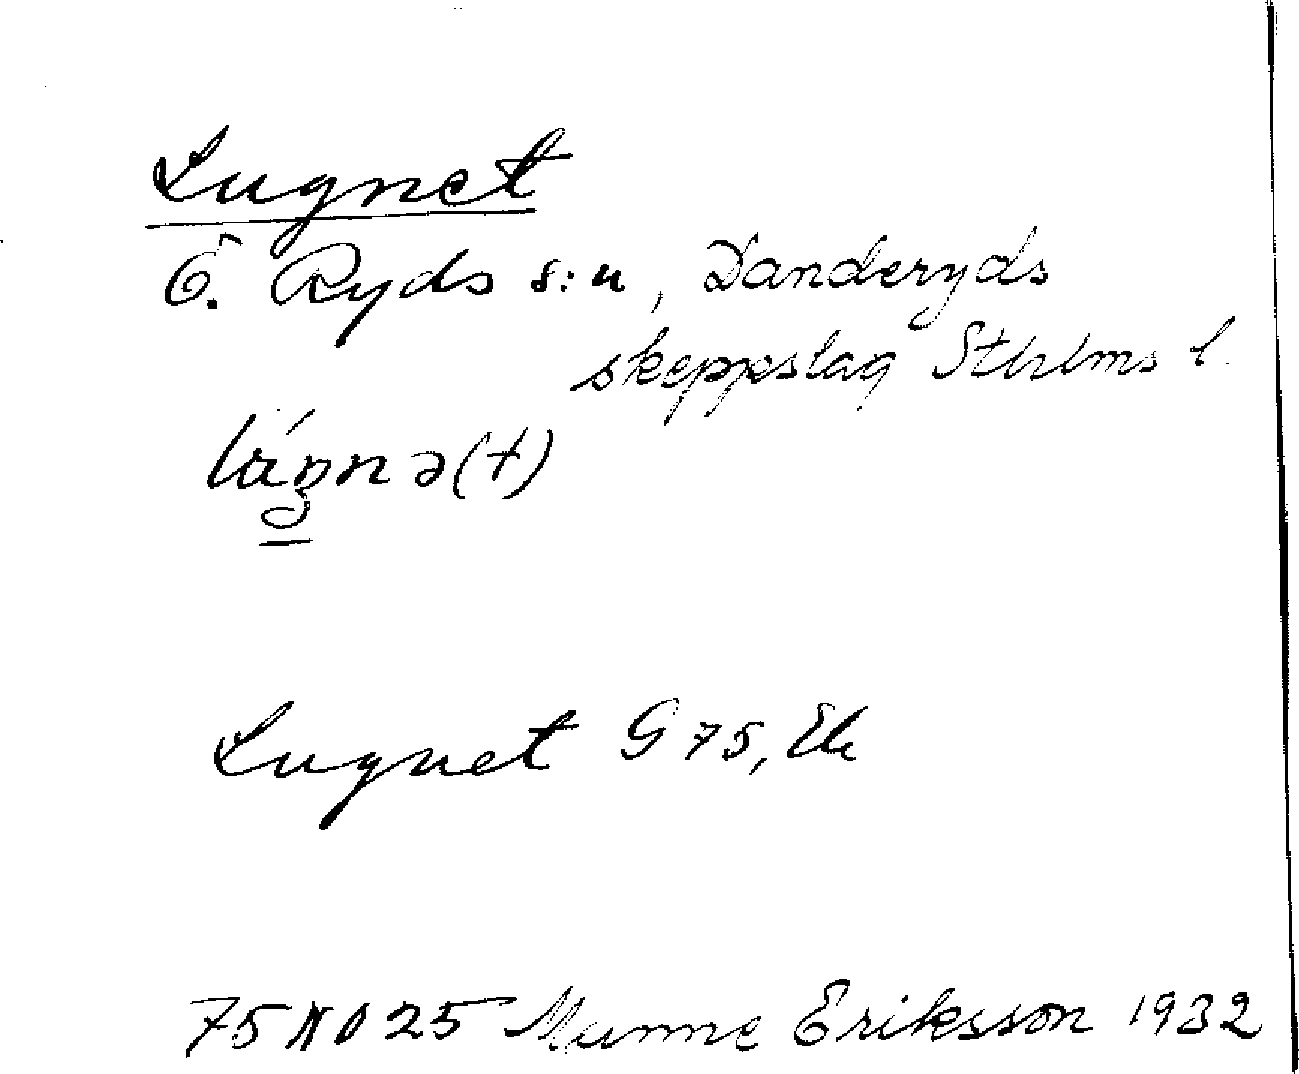 Lugnet
Ö. Ryds s:n, Danderyds
skeppslag Sthlms l.
Lugnet G 75, Ek
75 NO 25 Manne Eriksson 1932